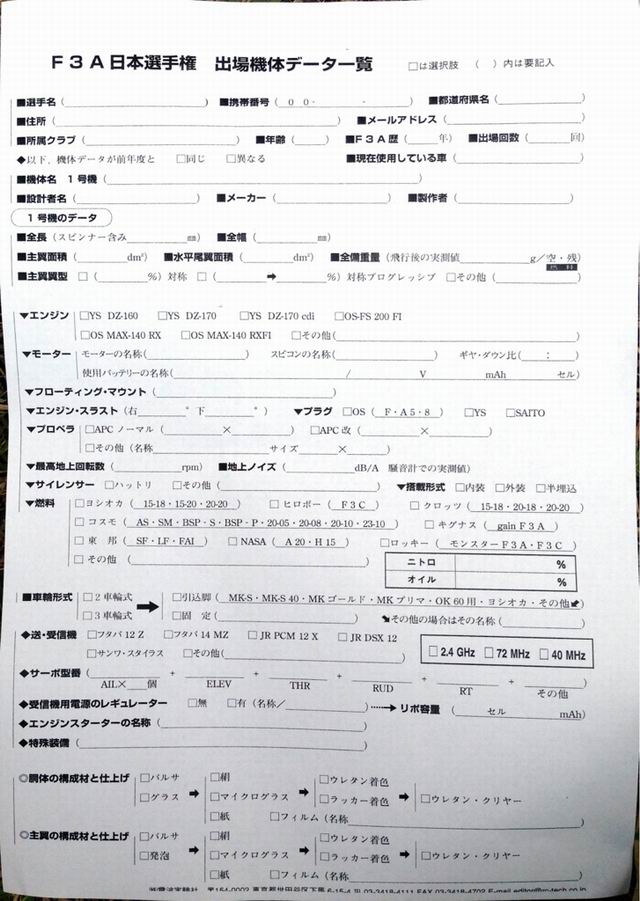 F3A日本選手権 出場機体データ一覧 □は選択肢 （ ）内は要記入
■選手名（ ） ■携帯番号（ 00- - ） ■都道府県名（ ）
■住所（ ） ■メールアドレス（ ）
■所属クラブ（ ） ■年齢（ ） ■F3A歴（ 年） ■出場回数（ 回）
◆以下、機体データが前年度と □同じ □異なる ■現在使用している車（ ）
■機体名 1号機（ ）
■設計者名（ ） ■メーカー（ ） ■製作者（ ）
1号機のデータ
■全長（スピンナー含み ㎜） ■全幅（ ㎜）
■主翼面積（ dm²） ■水平尾翼面積（ dm²） ■全備重量（飛行後の実測値 g／空・残）
燃料
■主翼翼型 □（ %）対称 □（ ➡ %）対称プログレッシブ □その他（ ）
▼エンジン □YS DZ-160 □YS DZ-170 □YS DZ-170 cdi □OS-FS 200 FI
□OS MAX-140 RX □OS MAX-140 RXFI □その他（ ）
▼モーター モーターの名称（ ） スピコンの名称（ ） ギヤ・ダウン比（ : ）
使用バッテリーの名称（ / V mAh セル）
▼フローティング・マウント（ ）
▼エンジン・スラスト（右 ° 下 °） ▼プラグ □OS（ F・A5・8 ） □YS □SAITO
▼プロペラ □APC ノーマル（ × ） □APC 改（ × ）
□その他（名称 サイズ × ）
▼最高地上回転数（ rpm） ■地上ノイズ（ dB/A 騒音計での実測値）
▼サイレンサー □ハットリ □その他（ ） ▼搭載形式 □内装 □外装 □半埋込
▼燃料 □ヨシオカ（ 15-18・15-20・20-20 ） □ヒロボー（ F3C ） □クロッツ（ 15-18・20-18・20-20 ）
□コスモ（ AS・SM・BSP・S・BSP・P・20-05・20-08・20-10・23-10 ） □キグナス（ gain F3A ）
□東 邦（ SF・LF・FAI ） □NASA（ A20・H15 ） □ロッキー（ モンスターF3A・F3C ）
□その他（ ） ニトロ %
オイル %
■車輪形式 □2車輪式 ➡ □引込脚（ MK-S・MK-S 40・MKゴールド・MKプリマ・OK60用・ヨシオカ・その他 ）
□3車輪式 □固 定（ ） その他の場合はその名称（ ）
◆送・受信機 □フタバ12Z □フタバ14MZ □JR PCM 12 X □JR DSX 12
□サンワ・スタイラス □その他（ ） □2.4 GHz □72 MHz □40 MHz
◆サーボ型番（ + + + + + ）
AIL× 個 ELEV THR RUD RT その他
◆受信機用電源のレギュレーター □無 □有（名称／ ） ┄➡ リポ容量（ セル mAh）
◆エンジンスターターの名称（ ）
◆特殊装備（ ）
◎胴体の構成材と仕上げ □バルサ □絹 □ウレタン着色
□グラス ➡ □マイクログラス ➡ □ラッカー着色 ➡ □ウレタン・クリヤー
□紙 □フィルム（名称 ）
◎主翼の構成材と仕上げ □バルサ □絹 □ウレタン着色
□発泡 ➡ □マイクログラス ➡ □ラッカー着色 ➡ □ウレタン・クリヤー
□紙 □フィルム（名称 ）
㈱電波実験社 〒154-0002 東京都世田谷区下馬6-15-4 Tel 03-3418-4111 FAX 03-3418-4702 E-mail editor@rc-tech.co.jp